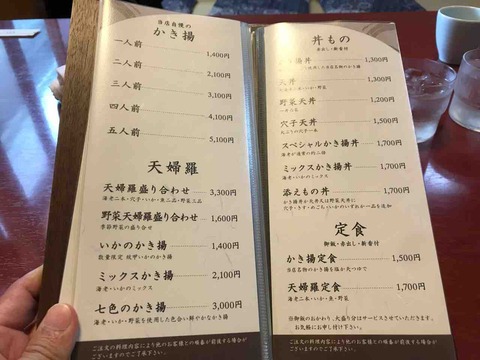 当店自慢の
かき揚
一人前 1,400円
二人前 2,100円
三人前 3,100円
四人前 4,100円
五人前 5,100円
天婦羅
天婦羅盛り合わせ 3,300円
海老二本・穴子・いか・魚二品・野菜三品
野菜天婦羅盛り合わせ 1,600円
季節野菜の盛り合せ
いかのかき揚 1,400円
数量限定
ミックスかき揚 2,100円
海老・いかのミックス
七色のかき揚 3,000円
海老・いか・野菜を使用した色合い鮮やかなかき揚
ご注文の料理内容により他のお客様との順番が前後する場合が
ございますのでご了承下さい。
丼もの
赤出し・新香付
揚丼 1,300円
天丼 1,300円
野菜天丼 1,200円
穴子天丼 1,500円
スペシャルかき揚丼 1,700円
ミックスかき揚丼 1,700円
海老・いかのミックス
添えもの丼 1,700円
かき揚丼か天丼又は野菜天丼に
穴子・きす・めごち・いかのいずれか一品を追加
定食
御飯・赤出し・新香付
かき揚定食 1,500円
当店名物のかき揚を塩か天つゆで
天婦羅定食 1,700円
海老二本・いか・魚・野菜
※御飯のおかわり、大盛り分はサービスさせていただきます。
お気軽にお申し付け下さい。
ご注文の料理内容により他のお客様との順番が前後する場合が
ございますのでご了承下さい。